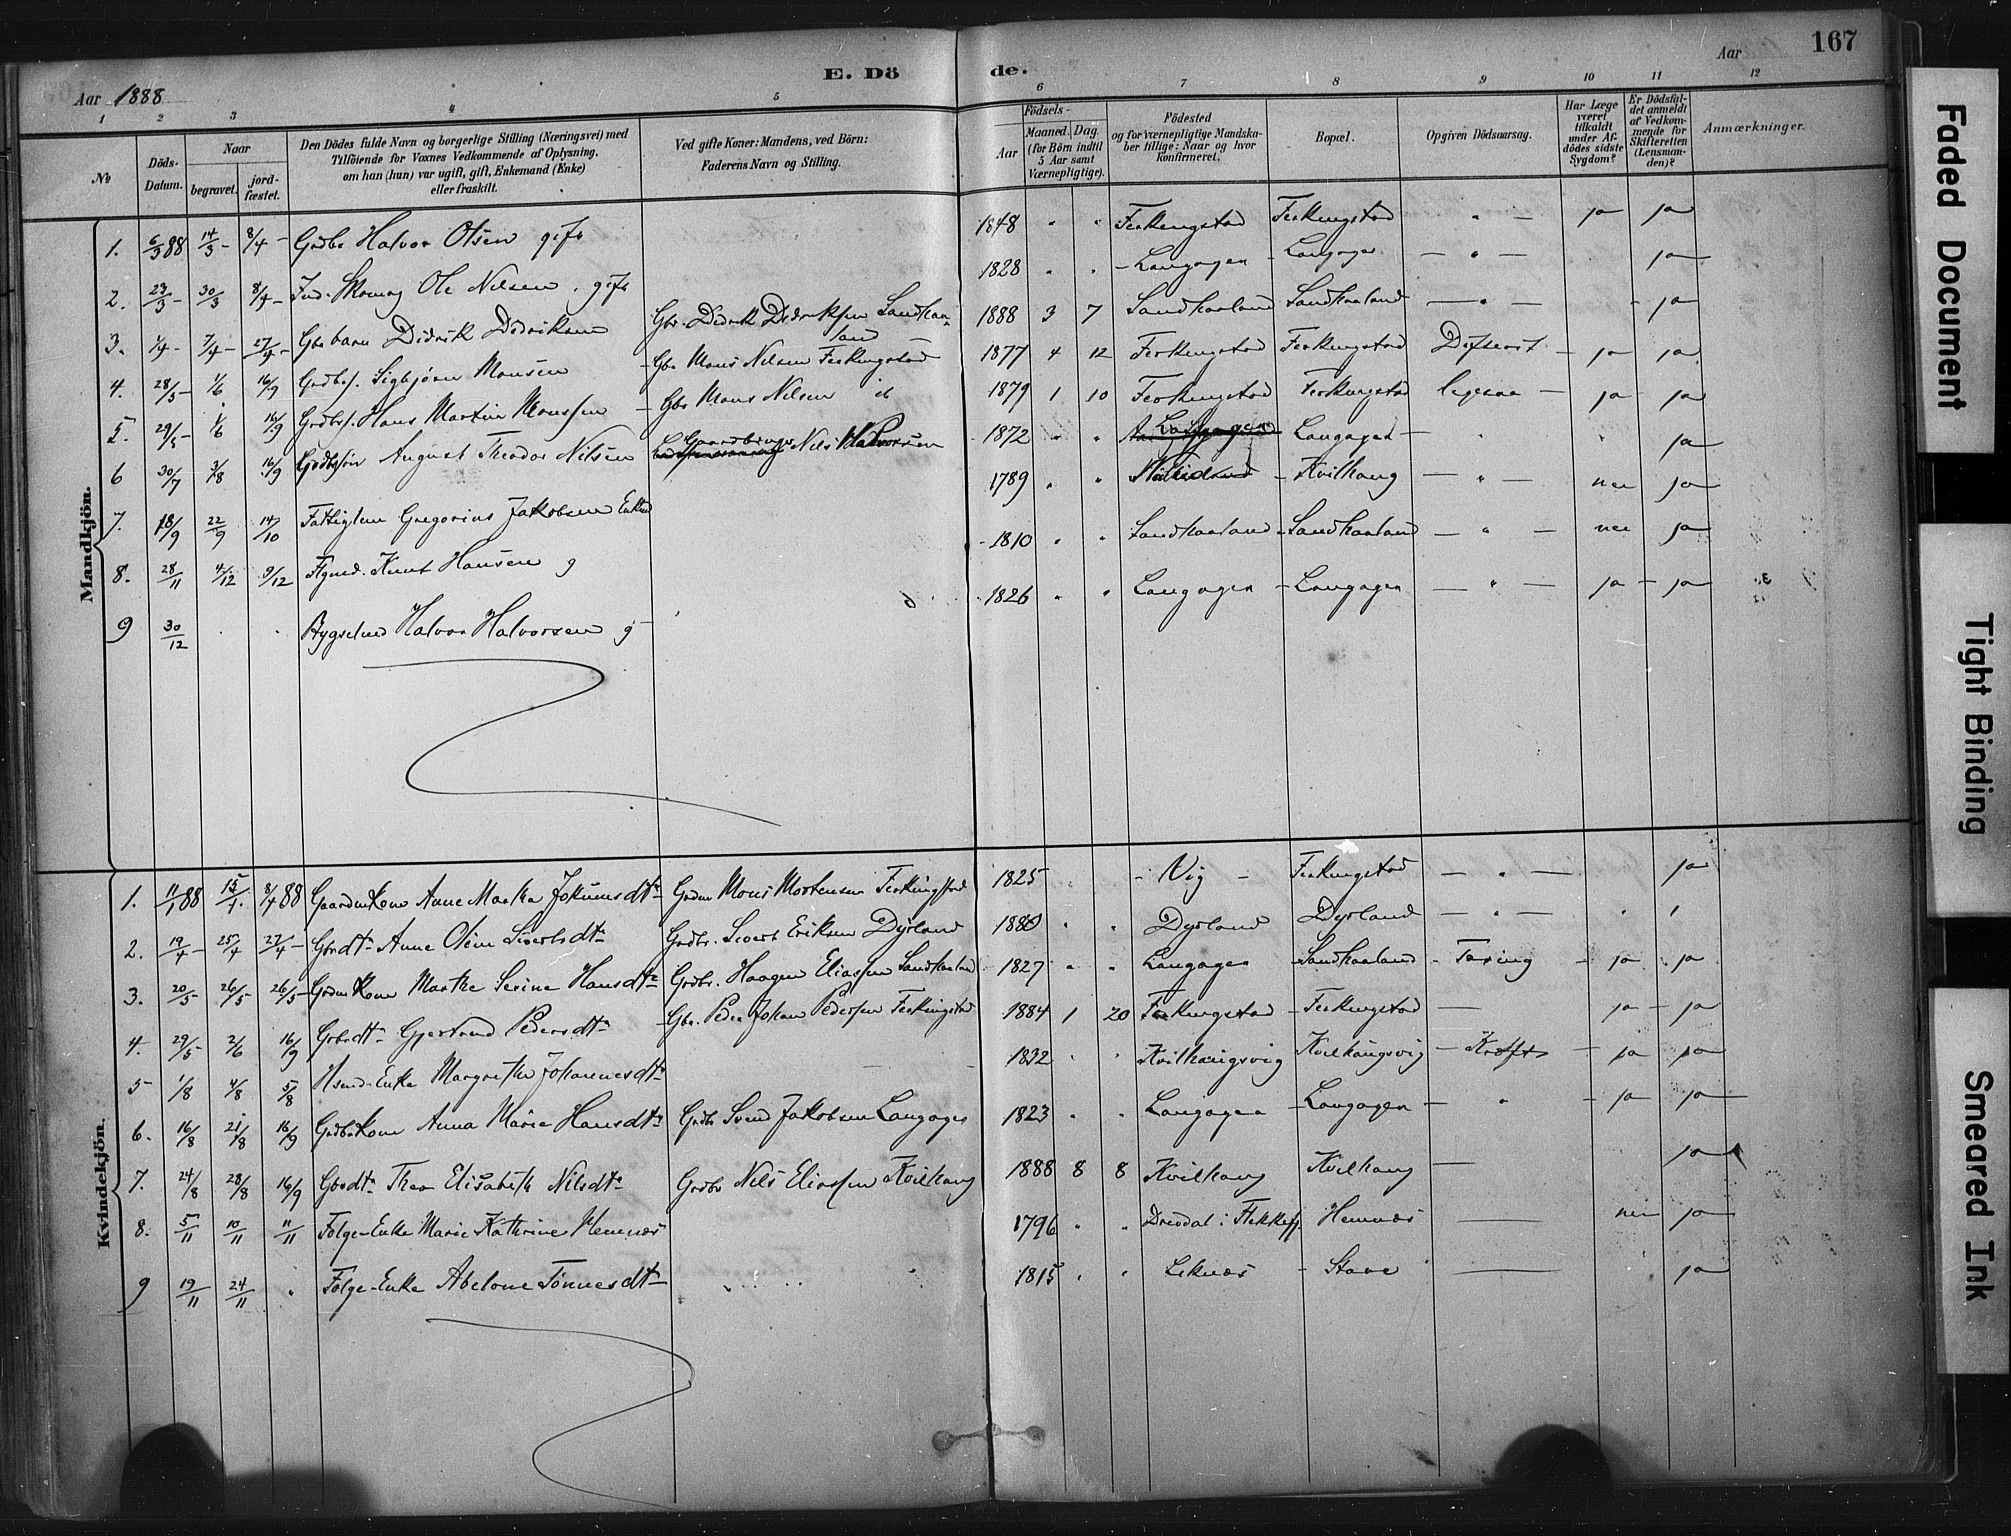 167
E. Dö de.
Aar 1888
Aar
1 2 3 4 5 6 7 8 9 10 11 12
No
Döds-Datum.
Naar
begravet.
jord-fæstet.
Den Dödes fulde Navn og borgerlige Stilling (Næringsvei) med
Tilföiende for Voxnes Vedkommende af Oplysning,
om han (hun) var ugift, gift, Enkemand (Enke)
eller fraskilt.
Ved gifte Koner: Mandens, ved Börn:
Faderens Navn og Stilling.
Födsels-
Aar
Maaned. Dag.
(for Börn indtil
5 Aar samt
Værnepligtige).
Födested
og for værnepligtige Mandska-
ber tillige: Naar og hvor
konfirmeret.
Bopæl.
Opgiven Dödsaarsag.
Har Læge
været
tilkaldt
under Af-
dödes sidste
Sygdom?
Er Dödsfal-
det anmeldt
af Vedkom-
mende for
Skifteretten
(Lensman-
den)?
Anmærkninger.
Mandkjön.
1. 6/3 88 14/3 - 8/4 - Grdbr Halvor Olsen gift 1848 " " Ferkingstad Ferkingstad " - ja ja
2. 23/3 - 30/3 8/4 - Ind. Skomag Ole Nilsen . gift 1828 . . - Langagen - Langagen - " - ja
3. 1/4 - 7/4 - 27/4 - Gbr barn Didrik Didriksen Gbr. Didrik Didriksen Sandhaa-
land 1888 3 7 Sandhaaland Sandhaaland - " - - ja
4. 28/5 - 1/6 16/9 Grdbrs. Sigbjørn Monsen - Gbr Mons Nilsen Ferkingstad 1877 4 12 Ferkingstad Ferkingstad Difterit - ja - ja
5. 29/5 - 1/6 16/9 Grdbrs. Hans Martin Monssen - Gbr Mons Nilsen ib 1879 1 10 Ferkingstad Ferkingstad ligesaa - ja - ja
6 30/7 3/8 16/9 Grdbrsøn August Theodor Nilsen Gaardbruger Nils Halvorsen 1872 " " Langagen Langagen - " " ja
7. 18/9 22/9 14/10 Fattiglem Gregorius Jakobsen Enkem 1789 " " - Kvilhaug - " - nei ja
8. 28/11 4/12 9/12 Knut Hansen g 1810 " " Sandhaaland - Sandhaaland - " - nei ja
9 30/12 . . Bygselmd Halvor Halvorsen g 1826 " " Langagen - Langagen - " - ja - ja
Kvindekjön.
1. 11/1 88 15/1. 8/4 88 Gaardmkone Anne Martha Jokumsdtr Grdm Mons Mortensen Ferkingstad 1825 - Vig - Ferkingstad - " - ja
2. 19/4 - 25/4 27/4 - Gbrdtr Anne Oline Sivertsdtr Grdbr. Sivert Eriksen Dyrland 1880 " " Dyrland Dyrland - " - " "
3. 20/5 - 26/5 - 26/5 - Grdmkone Marthe Serine Hansdtr Grdbr. Haagen Eliassen Sandhaaland 1827 " " Langagen - Sandhaaland - Tæring - ja ja
4. 29/5 - 2/6 16/9 Grbrdtr Gjertrud Pedersdtr - Gbr. Peder Johan Pedersen Ferkingstad 1884 1 20 Ferkingstad - Ferkingstad - ja - ja
5 1/8 4/8 5/8 Hsmd-Enke Margrethe Johannesdtr 1832 . " Kvilhaugsvig Kvilhaugsvig - Kræft - ja ja
6. 16/8 21/8 16/9 Grdbrkone Anna Marie Hansdtr Grdbr Svend Jakobsen Langagen 1823 . " Langagen - Langagen - " - ja ja
7. 24/8 28/8 16/9 Gbrdtr Thea Elisabeth Nilsdtr Grdbr Nils Eliassen Kvilhaug 1888 8 8 Kvilhaug Kvilhaug - ja
8. 5/11 10/11 11/11 Følge-Enke Marie Kathrine Hemnæs 1796 " " i Flekkefj Hemnæs - nei ja
9 19/11 24/11 " Følge-Enke Abelone Tønnesdtr 1815 " " Leknæs - Stave - ja
Faded Document
Tight Binding
Smeared Ink